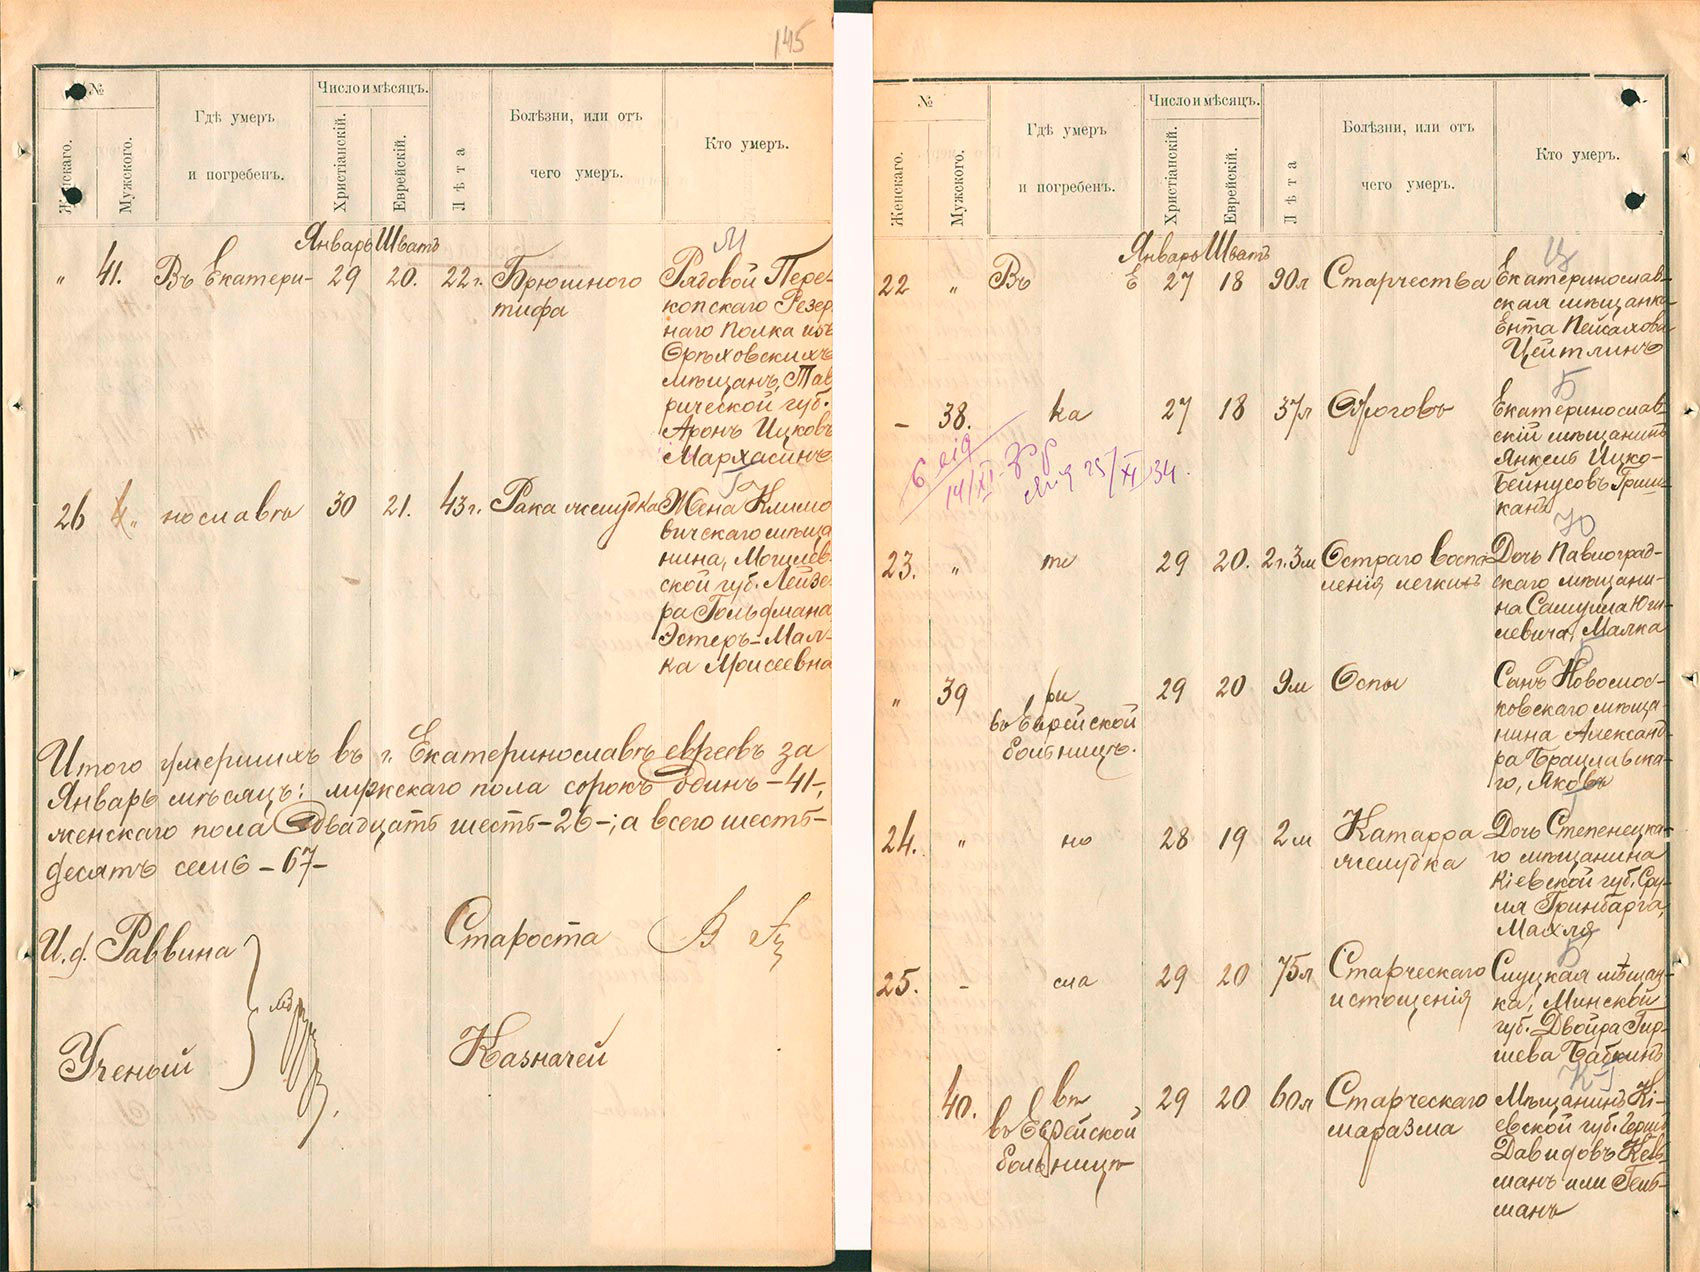 145
№
Женскаго.
Мужского.
Гдѣ умеръ
и погребенъ.
Число и мѣсяцъ.
Христіанскій.
Еврейскій.
Лѣта
Болѣзни, или отъ
чего умеръ.
Кто умеръ.
Январь Шватъ
М
" 41. Въ Екатери- 29 20. 22 г. Брюшного
тифа
Рядовой Пере-
копскаго Резер
наго Полка изъ
Орѣховскихъ
мѣщанъ, Тав
рической губ.
Аронъ Ицковъ
Мархасинъ
Г
26 " нославѣ 30 21. 43 г. Рака желудка
Жена Климо
вичскаго мѣща
нина, Могилев
ской губ. Лейзе
ра Гольфмана
Эстеръ-Мал-
ка Моисеевна
Итого умершихъ въ г. Екатеринославѣ евреевъ за
Январь мѣсяцъ: мужскаго пола сорокъ одинъ -41-,
женскаго пола двадцать шесть -26-; а всего шесть-
десятъ семь -67-
И. д. Раввина
Староста
Ученый
Казначей
№
Женскаго.
Мужского.
Гдѣ умеръ
и погребенъ.
Число и мѣсяцъ.
Христіанскій.
Еврейскій.
Лѣта
Болѣзни, или отъ
чего умеръ.
Кто умеръ.
Январь Шватъ
Ц
22 " Въ Е 27 18 90 л Старчества
Екатеринослав-
ская мѣщанка
Ента Пейсахова
Цейтлинъ
Б
- 38. ка 27 18 37 л Ожоговъ
Екатеринослав
скій мѣщанинъ
Янкель Ицко-
Бейнусовъ
14/XI
25/XI 34.
Ю
23. " те 29 20. 2 г. 3 м Остраго воспа
ленія легкихъ
Дочь Павлоград-
скаго мѣщани-
на Самуила Юги
левича, Малка
Б
" 39 ри 29 20 9 м Оспы
въ Еврейской
больницѣ.
Сынъ Новомос-
ковскаго мѣща-
нина Александ-
ра Брацлавска-
го, Яковъ
Г
24. " но 28 19 2 м Катарра
желудка
Дочь Степенецка-
го мѣщанина
Кіевской губ. Сру-
ля Гринберга,
Махля
Б
25. - сла 29 20 75 л Старческаго
истощенія
Слуцкая мѣщан-
ка, Минской
губ. Двойра Гир-
шева Бабкинъ
КГ
40. вѣ 29 20 60 л Старческаго
маразма
въ Еврейской
больницѣ
Мѣщанинъ Кі-
евской губ.
Давидовъ Кель-
манъ или Гель-
манъ